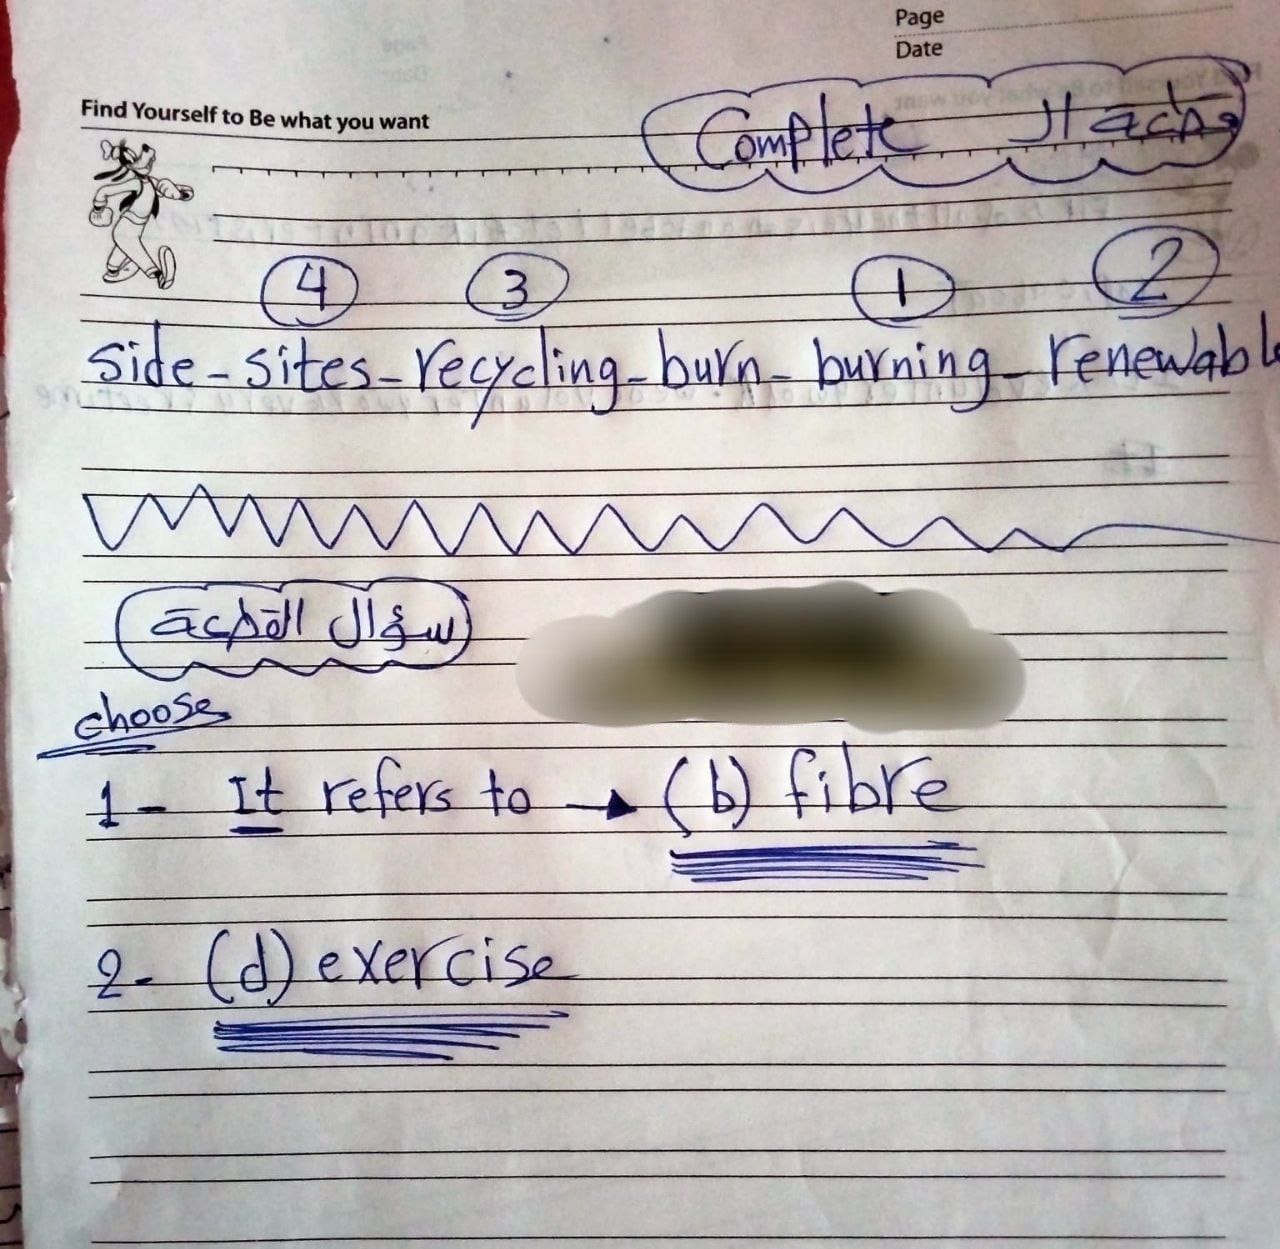 Page
Date
Find Yourself to Be what you want
Complete الـ قطعة
4 3 1 2
side - sites - recycling - burn - burning - renewable
سؤال القطعة
choose
1 - It refers to → (b) fibre
2 - (d) exercise